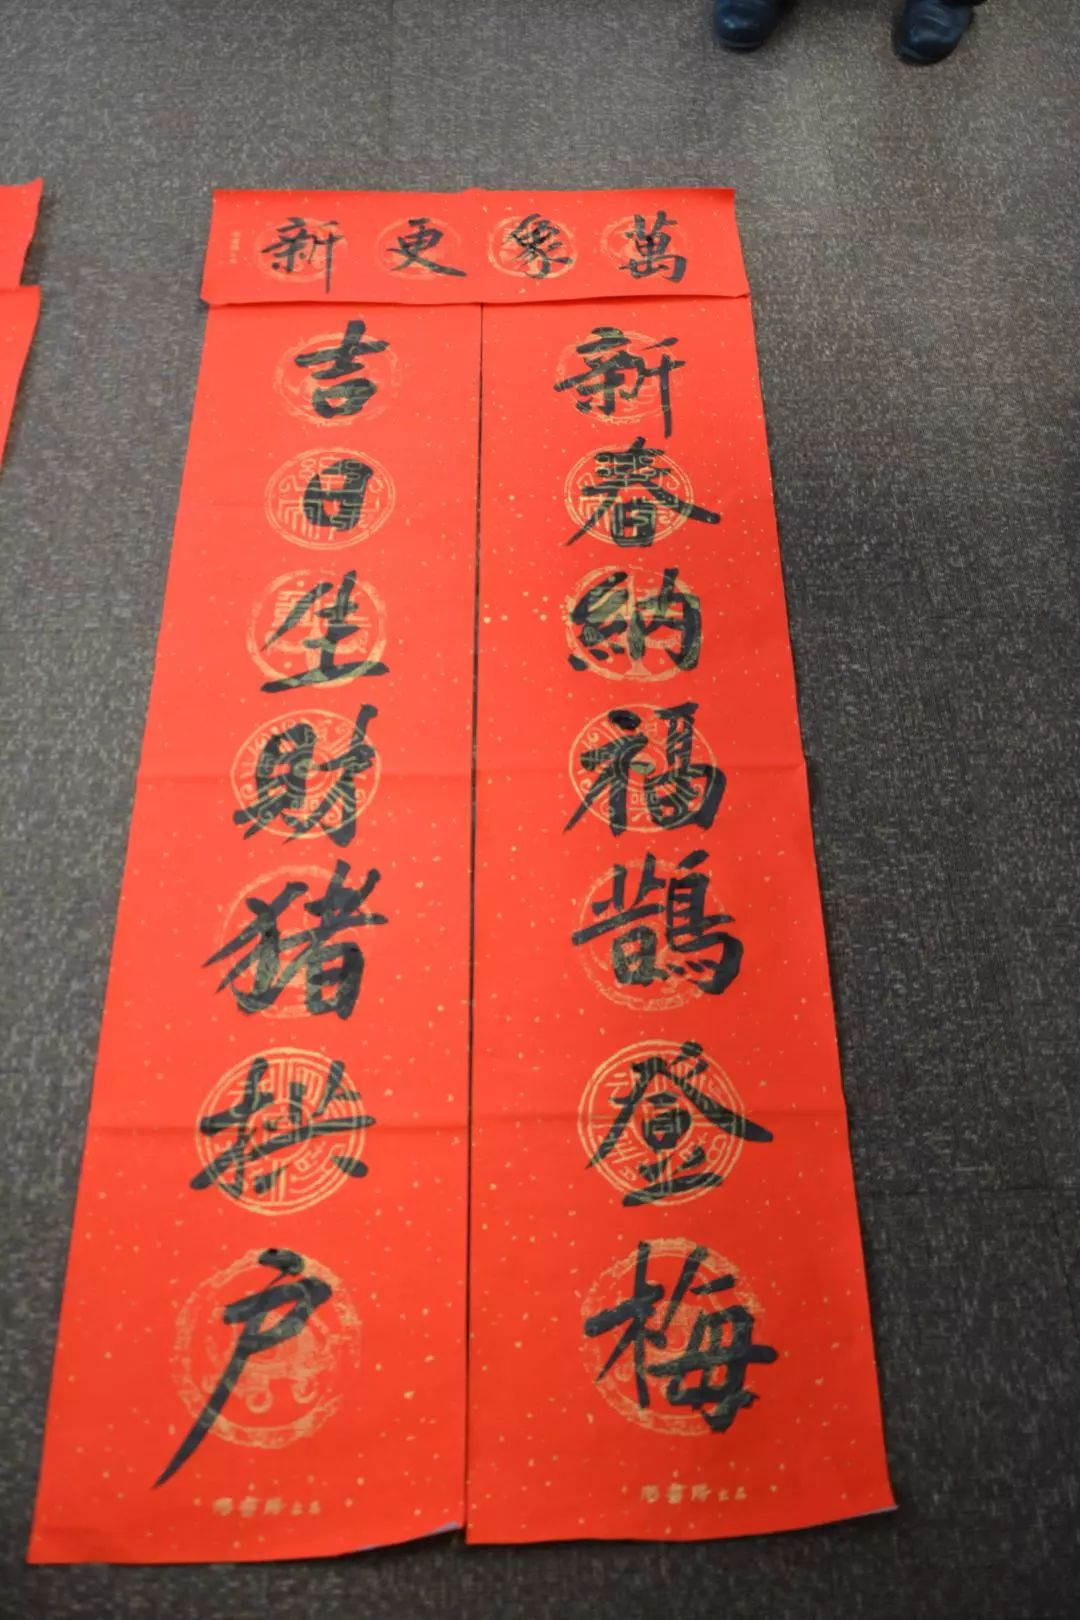 萬象更新
新春納福鵲登梅
吉日生財猪拱户